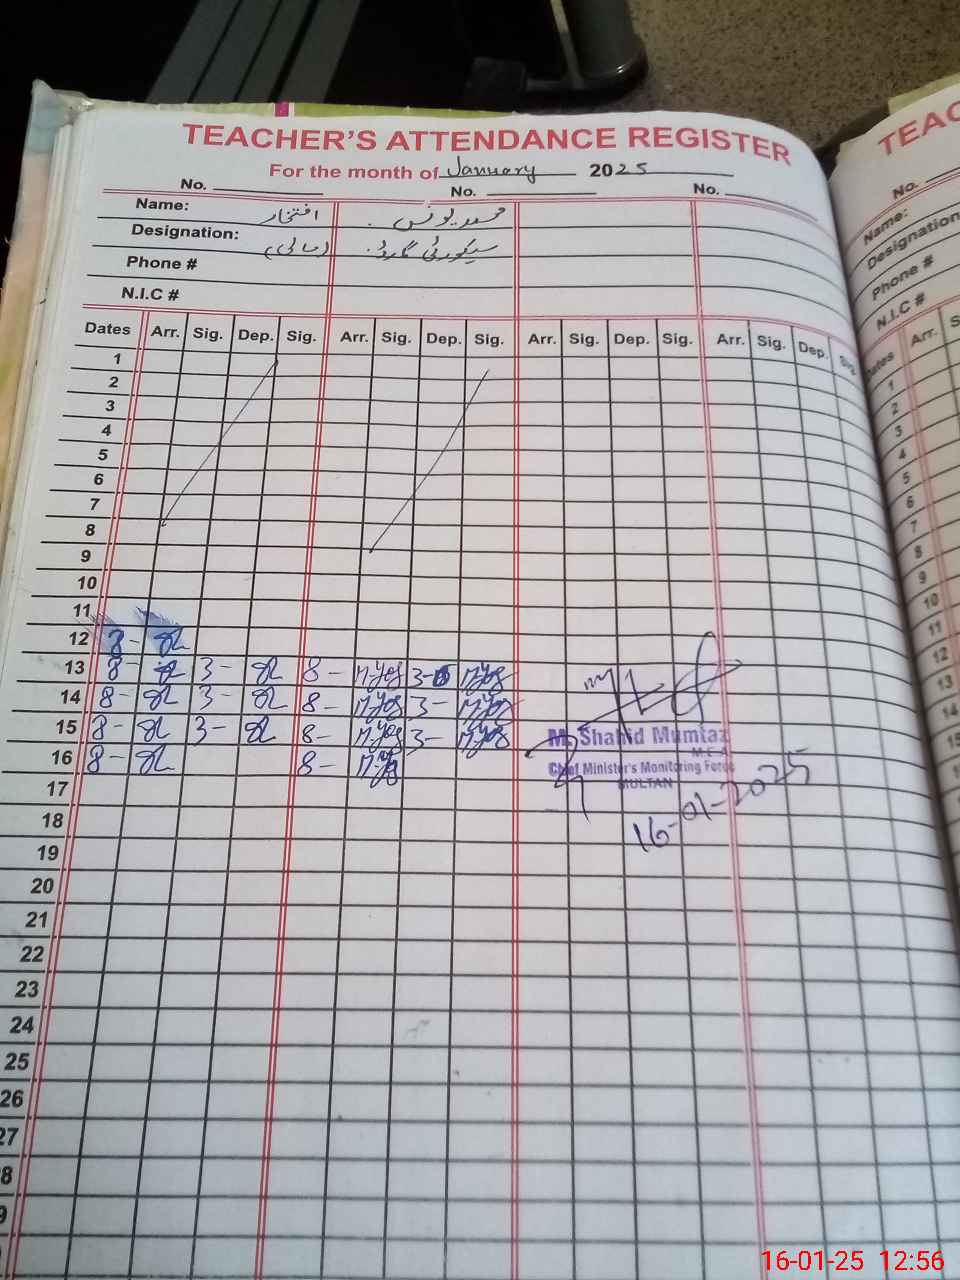 TEACHER'S ATTENDANCE REGISTER
For the month of January 2025
No. No. No.
Name: افتخار محمد یونس
Designation: (مالی) سیکورٹی گارڈ
Phone #
N.I.C #
Dates Arr. Sig. Dep. Sig. Arr. Sig. Dep. Sig. Arr. Sig. Dep. Sig. Arr. Sig. Dep. Sig.
1
2
3
4
5
6
7
8
9
10
11
12 8-
13 8- 3- 8- 3-
14 8- 3- 8- 3-
15 8- 3- 8- 3-
16 8- 8-
M. Shahid Mumtaz
M.E.A
Chief Minister's Monitoring Force
MULTAN
16-01-2025
17
18
19
20
21
22
23
24
25
26
27
8
9
TEAC
No.
Name:
Designation
Phone #
N.I.C #
Dates Arr. S
1
2
3
4
5
6
7
8
9
10
11
12
13
14
15
16-01-25 12:56